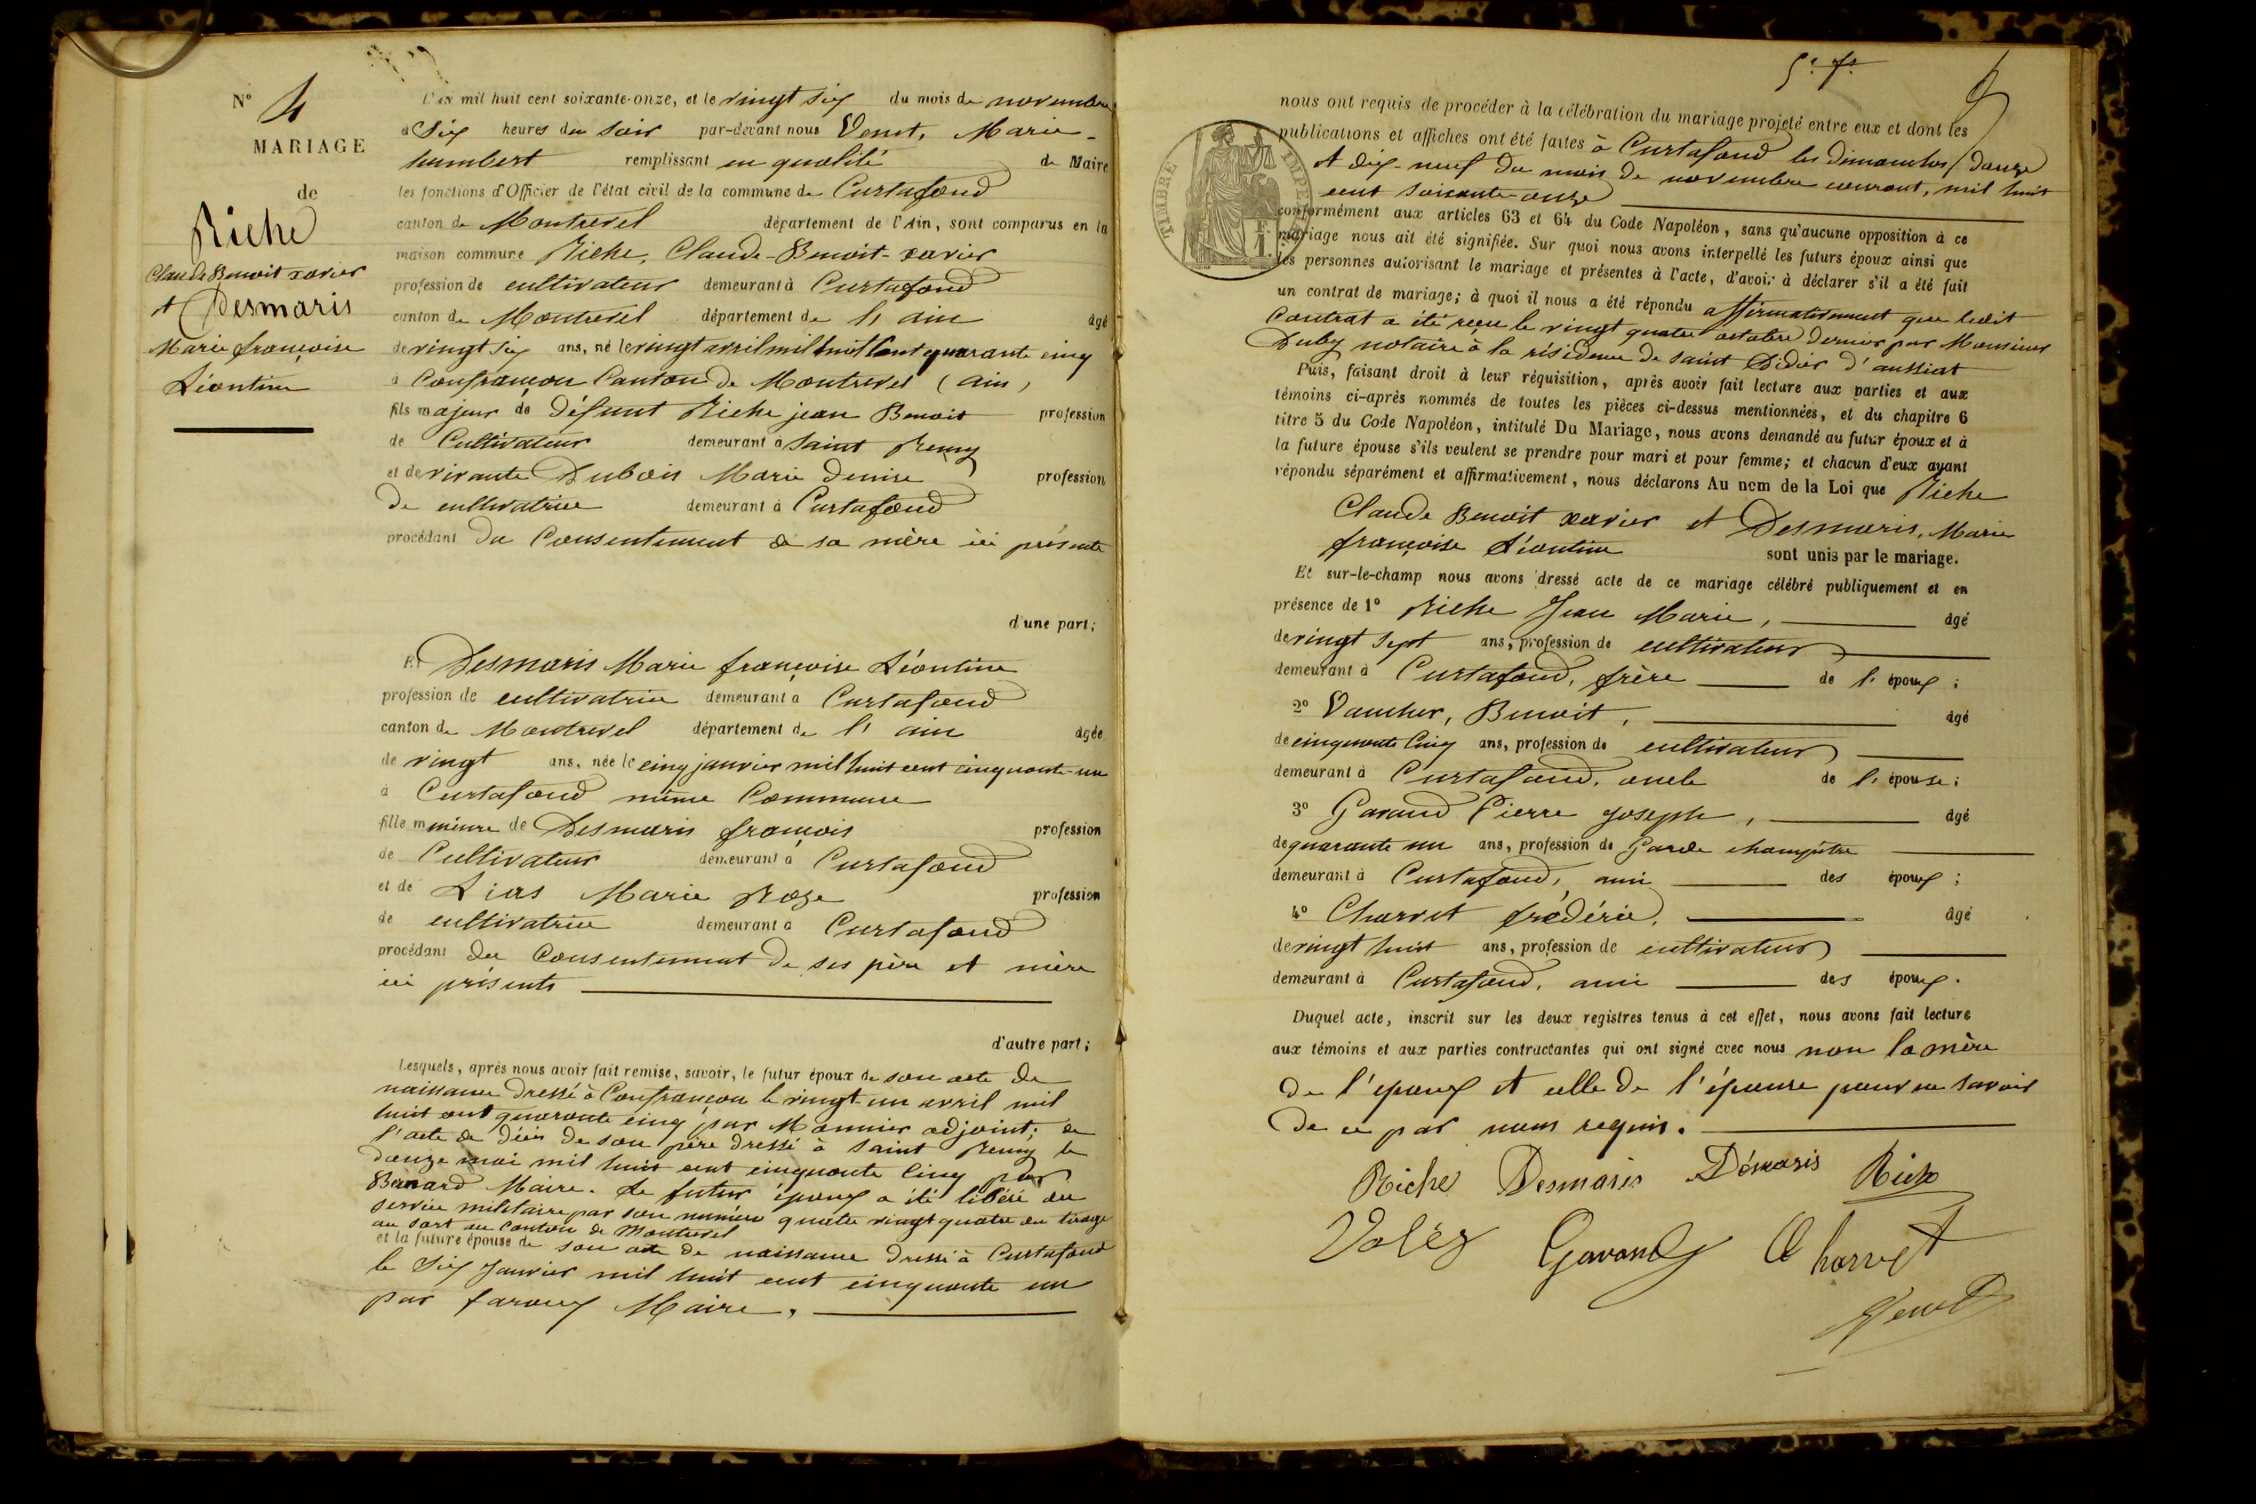 N° 4
MARIAGE
de
Riche
Claude Benoit xavier
et Desmaris
Marie françoise
Léontine
L'an mil huit cent soixante-onze, et le vingt six du mois de novembre
à Six heures du soir par-devant nous Venet, Marie-
humbert remplissant en qualité de Maire
les fonctions d'Officier de l'état civil de la commune de Curtafond
canton de Montrevel département de l'Ain, sont comparus en la
maison commune Riche, Claude-Benoit-xavier
profession de cultivateur demeurant à Curtafond
canton de Montrevel département de l'ain âgé
de vingt six ans, né le vingt avril mil huit Cent quarante cinq
à Confrançon Canton de Montrevel (Ain)
fils majeur de défunt Riche jean Benoit profession
de Cultivateur demeurant à Saint Remy
et de vivante Dubois Marie Denise profession
de cultivatrice demeurant à Curtafond
procédant du Consentement de sa mère ici présente
d'une part;
Et Desmaris Marie françoise Léontine
profession de cultivatrice demeurant à Curtafond
canton de Montrevel département de l'ain âgée
de vingt ans, née le cinq janvier mil huit cent cinquante-un
à Curtafond même Commune
fille mineure de Desmaris françois profession
de Cultivateur demeurant à Curtafond
et de Lias Marie Roze profession
de cultivatrice demeurant à Curtafond
procédant du Consentement de ses père et mère
ici présents
d'autre part;
Lesquels, après nous avoir fait remise, savoir, le futur époux de son acte de
naissance dressé à Confrançon le vingt-un avril mil
huit cent quarante cinq par Monnier adjoint; de
l'acte de décès de son père dressé à Saint Remy le
douze mai mil huit cent cinquante Cinq par
Bernard Maire. Le futur époux a été libéré du
service militaire par son numéro quatre vingt quatre au tirage
au sort au Canton de Montrevel
et la future épouse de son acte de naissance dressé à Curtafond
le Six Janvier mil huit cent cinquante un
par faroux Maire,
5e fo
nous ont requis de procéder à la célébration du mariage projeté entre eux et dont les
publications et affiches ont été faites à Curtafond les dimanches douze
et dix-neuf du mois de novembre courant, mil huit
cent soixante-onze
TIMBRE IMPE
conformément aux articles 63 et 64 du Code Napoléon, sans qu'aucune opposition à ce
mariage nous ait été signifiée. Sur quoi nous avons interpellé les futurs époux ainsi que
les personnes autorisant le mariage et présentes à l'acte, d'avoir à déclarer s'il a été fait
un contrat de mariage; à quoi il nous a été répondu affirmativement que ledit
Contrat a été reçu le vingt quatre octobre dernier par Monsieur
Duby notaire à la résidence de saint Didier d'aussiat
Puis, faisant droit à leur réquisition, après avoir fait lecture aux parties et aux
témoins ci-après nommés de toutes les pièces ci-dessus mentionnées, et du chapitre 6
titre 5 du Code Napoléon, intitulé Du Mariage, nous avons demandé au futur époux et à
la future épouse s'ils veulent se prendre pour mari et pour femme; et chacun d'eux ayant
répondu séparément et affirmativement, nous déclarons Au nom de la Loi que Riche
Claude Benoit xavier et Desmaris, Marie
françoise Léontine sont unis par le mariage.
Et sur-le-champ nous avons dressé acte de ce mariage célébré publiquement et en
présence de 1° Riche Jean Marie, âgé
de vingt sept ans, profession de cultivateur
demeurant à Curtafond, frère de l'époux;
2° Vaucher, Benoit, âgé
de cinquante Cinq ans, profession de cultivateur
demeurant à Curtafond, oncle de l'épouse;
3° Gavand Pierre Joseph, âgé
de quarante un ans, profession de Garde champêtre
demeurant à Curtafond, ami des époux;
4° Charvet frédéric, âgé
de vingt huit ans, profession de cultivateur
demeurant à Curtafond, ami des époux.
Duquel acte, inscrit sur les deux registres tenus à cet effet, nous avons fait lecture
aux témoins et aux parties contractantes qui ont signé avec nous non la mère
de l'époux et celle de l'épouse pour ne savoir
de ce par nous requis.
Riche Desmaris Démaris Riche
Gavand Charvet
Venet